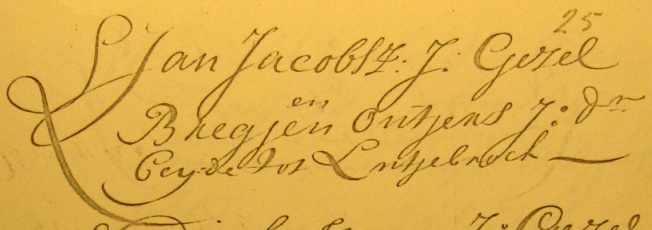 25
Jan Jacobsz: J: Gezel
en
Bregjen Ontjens J: dr
Beyde tot Lutjebroek
J: Gezel